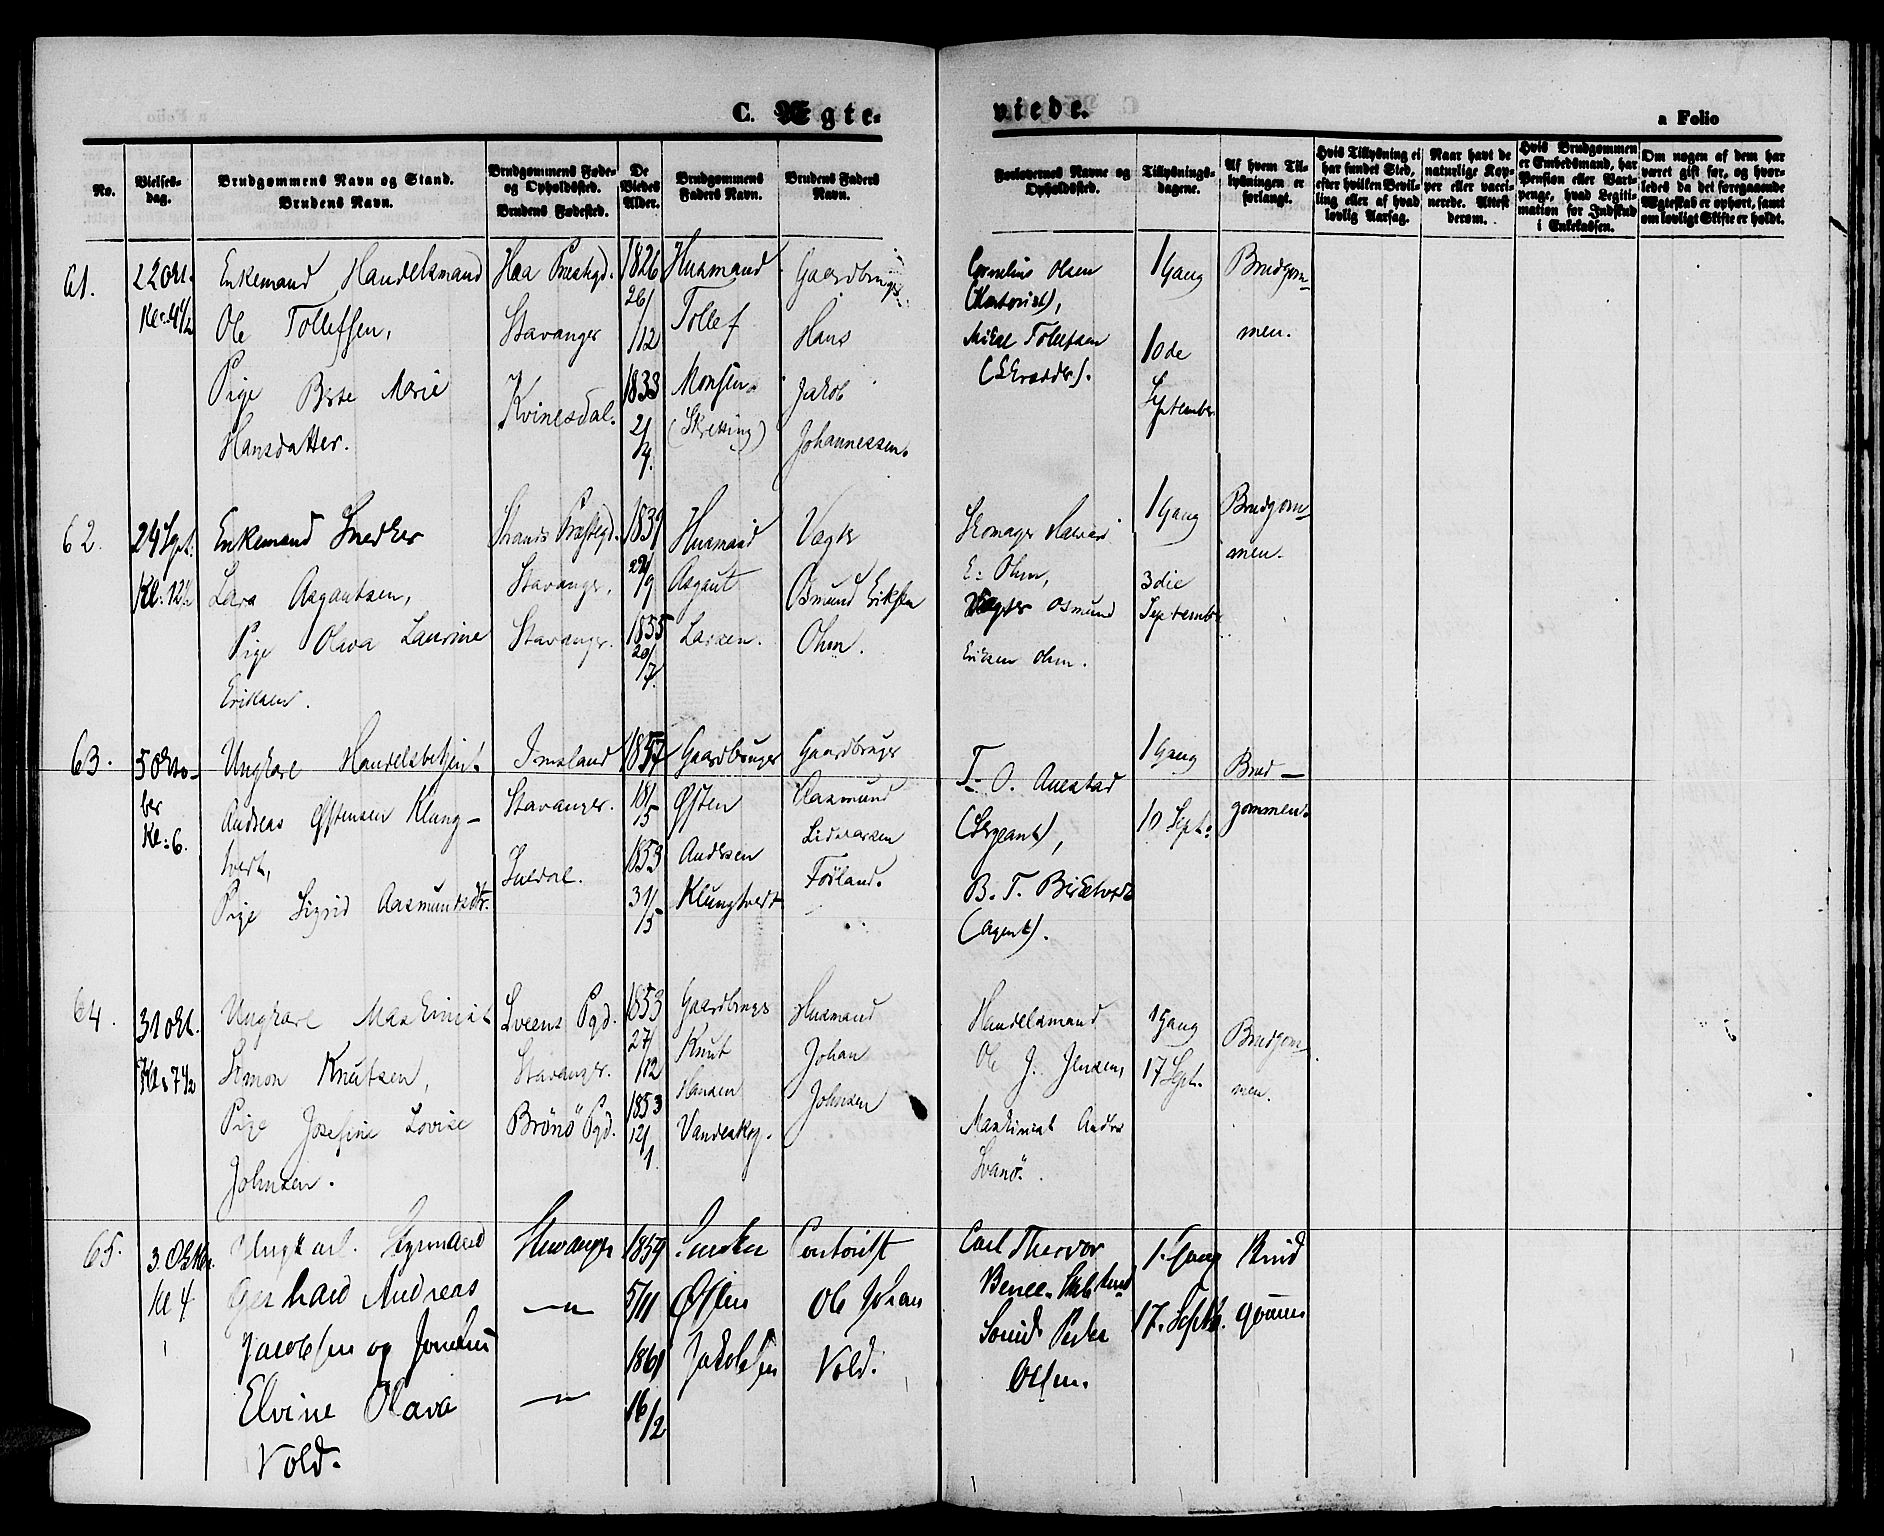 C. Ægte-
viede.
a Folio
No.
Vielses-
dag.
Brudgommens Navn og Stand.
Brudens Navn.
Brudgommens Føde-
og Opholdssted.
Brudens Fødested.
De
Viedes
Alder.
Brudgommens
Faders Navn.
Brudens Faders
Navn.
Forlovernes Navne og
Opholdssted.
Tillysnings-
dagene.
Af hvem Til-
lysningen er
forlangt.
Hvis Tillysning ei
har fundet Sted,
efter hvilken Bevil-
ling eller af hvad
lovlig Aarsag.
Naar havt de
naturlige Kop-
per eller vacci-
nerede. Attest
derom.
Hvis Brudgommen
er Embedsmand, har
Pension eller Vart-
penge, hvad Legiti-
mation for Indskud
i Enkekassen.
Om nogen af dem har
været gift før, og hvor-
ledes da det foregaaende
Ægteskab er ophørt, samt
om lovligt Skifte er holdt.
61.
22 Okt.
Kl: 4 1/2
Enkemand Handelsmand
Ole Tollefsen,
Pige Berte Marie
Hansdatter.
Haa Prestegd.
Stavanger
Kvinesdal.
1826
26/
/12
1833
2/
/4.
Husmand
Tollef
Monsen
(Skretting)
Gaardbruger
Hans
Jakob
Johannessen.
Cornelius Olsen
(Kontorist),
Mikal Tollefsen
(Skrædder).
1 Gang
10de
September
Brudgom-
men.
62.
24 Sept.
Kl: 12 1/2
Enkemand Snedker
Lars Asgautsen,
Pige Olava Laurine
Eriksen.
Strands Præstegd.
Stavanger.
Stavanger.
1839
29/
/9
1855
20/
/7.
Husmand
Asgaut
Larsen.
Vægter
Osmund Eriksen
Ohm.
Skomager Halvard
E: Ohm,
Vægter Osmund
Eriksen Ohm.
1 Gang
3die
September
Brudgom-
men.
63.
5 Okto-
ber
Kl: 6.
Ungkarl Handelsbetjent
Andreas Østensen Klung-
tvedt,
Pige Sigrid Aasmundsdtr.
Imsland
Stavanger.
Suldal.
1857
18/
/5
1853
31/
/5
Gaardbruger
Østen
Andersen
Klungtvedt
Gaardbruger
Aasmund
Lidvarsen
Førland.
T. O. Auestad
(Sergeant),
B. T. Birketvedt
(Agent).
1 Gang
10 Sept.
Brud-
gommen.
64.
31 Okt.
Kl: 7 1/2
Ungkarl Maskinist
Simon Knutsen,
Pige Josefine Lovise
Johnsen.
Sveens Pgd.
Stavanger.
Brönö Pgd.
1853
27/
/12
1853
12/
/1.
Gaardbruger
Knut
Hansen
Vandaskog.
Husmand
Johan
Johnsen
Handelsmand
Ole J. Jensen,
Maskinist Andr
Svanö.
1 Gang
17 Sept.
Brudgom-
men.
65.
3. Oktbr.
Kl 4
Ungkarl. Styrmand
Gerhard Andreas
Jacobsen og
Elvine Olava
Vold.
Stavanger
—"—
—"—
1859
5/11
1861
16/2
Snedker
Østen
Jakobsen
Contorist
Ole Johan
Vold.
Carl Theodor
Smid. Peder
Olsen.
1. Gang
17. Septb.
Brud
gommen